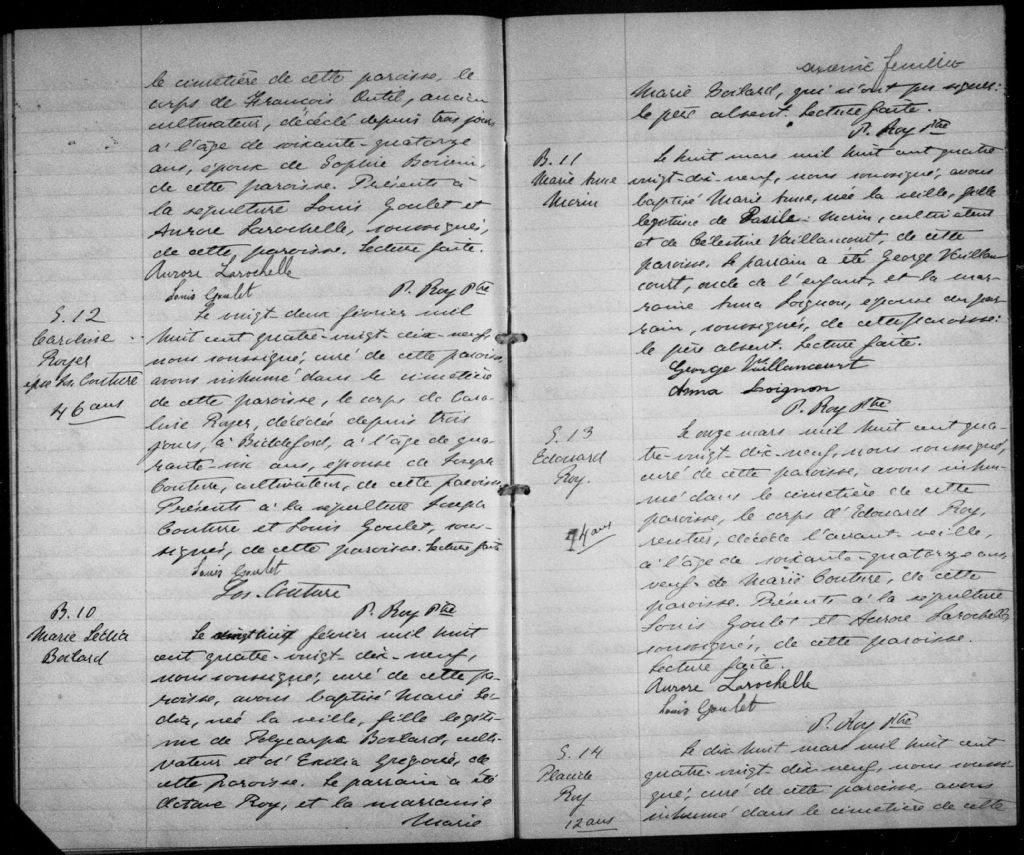 le cimetière de cette paroisse, le
corps de François Outil, ancien
cultivateur, décédé depuis trois jours
à l'âge de soixante-quatorze
ans, époux de Sophie
de cette paroisse. Présents à
la sépulture Louis Goulet et
Aurore Larochelle, soussignés,
de cette paroisse. Lecture faite.
Aurore Larochelle
Louis Goulet
P. Roy Ptre
S. 12
Caroline
Royer
épse Jos Couture
46 ans
Le vingt deux février mil
huit cent quatre-vingt dix-neuf,
nous soussigné, curé de cette paroisse
avons inhumé dans le cimetière
de cette paroisse, le corps de Caro-
line Royer, décédée depuis trois
jours, à Biddeford, à l'âge de qua-
rante-six ans, épouse de Joseph
Couture, cultivateur, de cette paroisse.
Présents à la sépulture Joseph
Couture et Louis Goulet, sous-
signés, de cette paroisse. Lecture faite
Louis Goulet
Jos. Couture
P. Roy Ptre
B. 10
Marie Ledia
Boilard
Le février mil huit
cent quatre-vingt-dix-neuf,
nous soussigné, curé de cette pa-
roisse, avons baptisé Marie Le-
dia, née la veille, fille légiti-
me de Polycarpe Boilard, culti-
vateur et d'Exilia Grégoire, de
cette paroisse. Le parrain a été
Octave Roy, et la marraine
Marie
onzième feuillet
Marie Boilard, qui n'ont pu signer:
le père absent. Lecture faite.
P. Roy Ptre
B. 11
Marie Anne
Morin
Le huit mars mil huit cent quatre
vingt-dix-neuf, nous soussigné, avons
baptisé Marie Anne, née la veille, fille
légitime de Basile Morin, cultivateur
et de Célestine Vaillancourt, de cette
paroisse. Le parrain a été George Vaillan
court, oncle de l'enfant, et la mar-
raine Anna Loignon, épouse du par-
rain, soussignés, de cette paroisse:
le père absent. Lecture faite.
George Vaillancourt
Anna Loignon
P. Roy Ptre
S. 13
Edouard
Roy.
74 ans
Le onze mars mil huit cent qua-
tre-vingt-dix-neuf, nous soussigné,
curé de cette paroisse, avons inhu-
mé dans le cimetière de cette
paroisse, le corps d'Edouard Roy,
rentier, décédé l'avant-veille,
à l'âge de soixante-quatorze ans,
veuf de Marie Couture, de cette
paroisse. Présents à la sépulture
Louis Goulet et Aurore Larochelle,
soussignés, de cette paroisse.
Lecture faite.
Aurore Larochelle
Louis Goulet
P. Roy Ptre
S. 14
Claude
Roy
12 ans
Le dix huit mars mil huit cent
quatre-vingt-dix-neuf, nous soussi-
gné, curé de cette paroisse, avons
inhumé dans le cimetière de cette